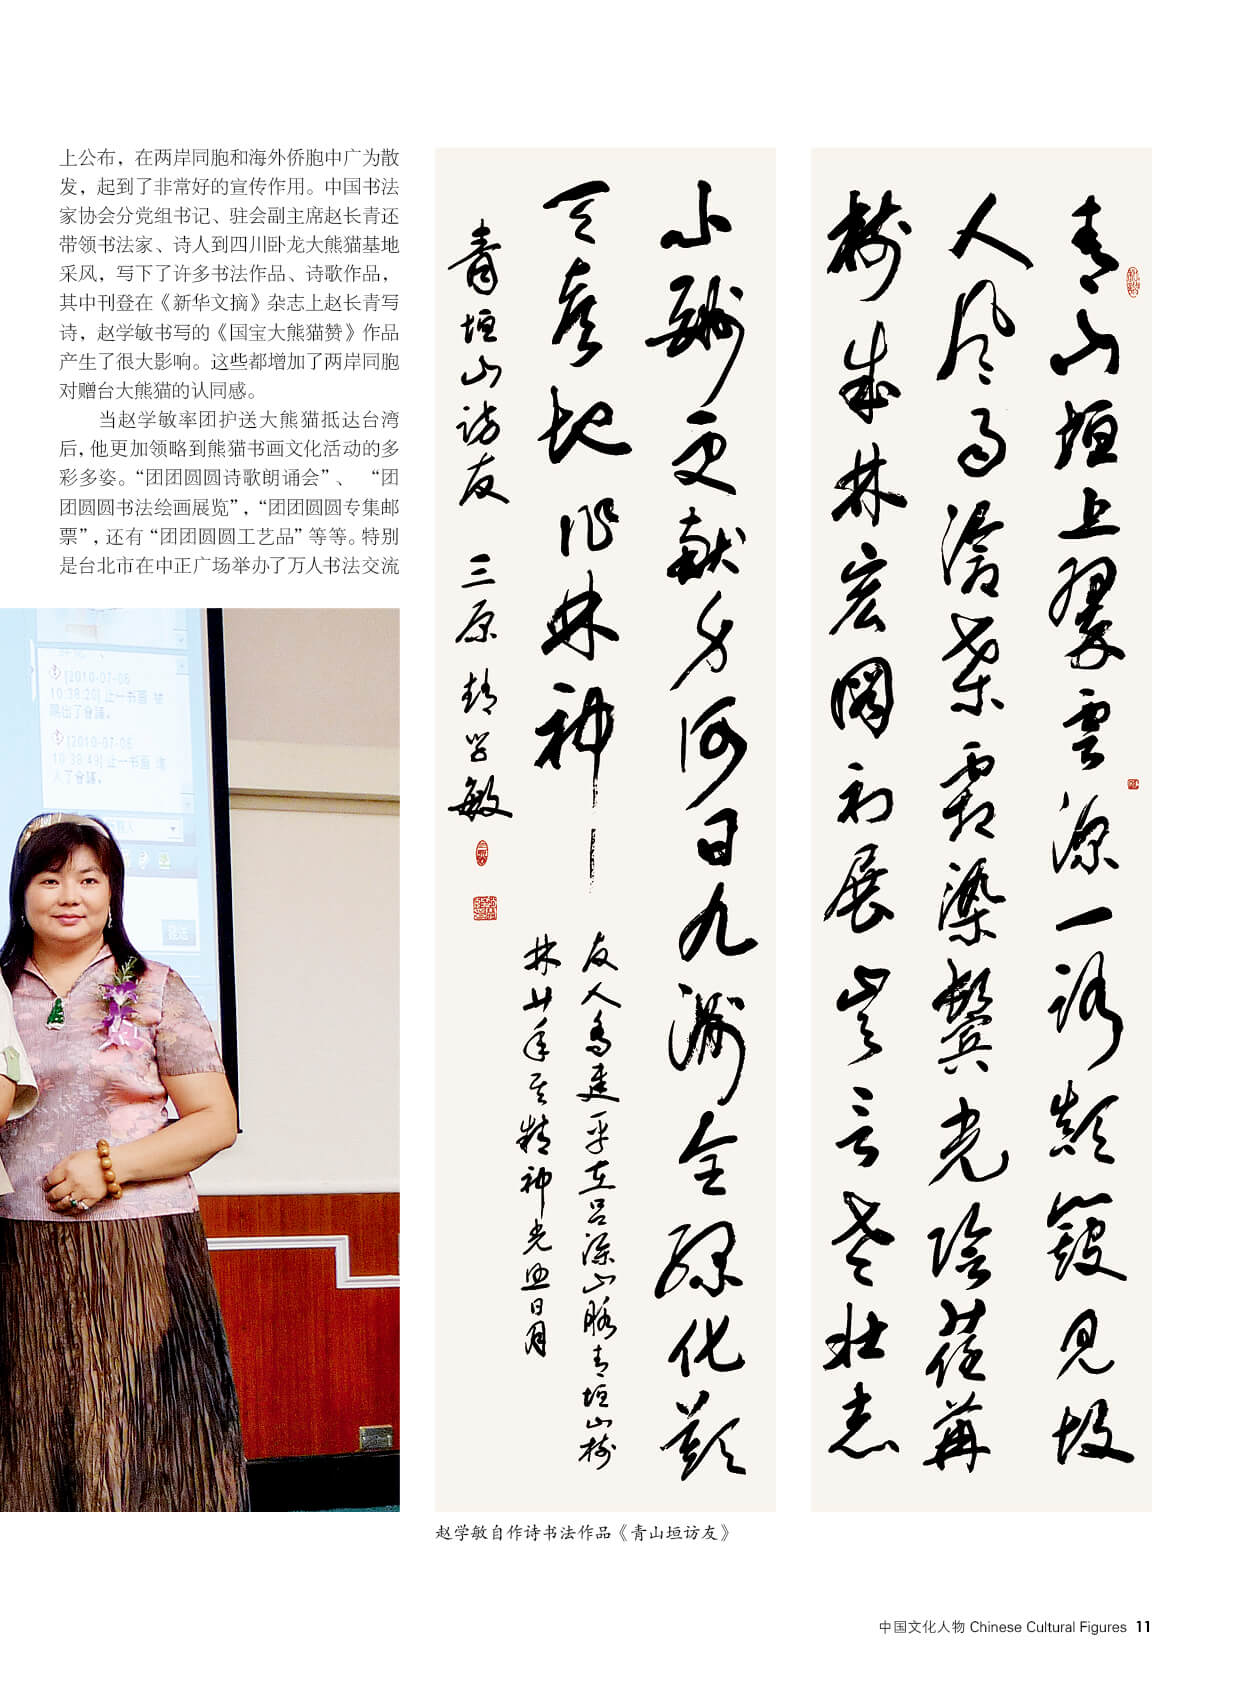 上公布，在两岸同胞和海外侨胞中广为散
发，起到了非常好的宣传作用。中国书法
家协会分党组书记、驻会副主席赵长青还
带领书法家、诗人到四川卧龙大熊猫基地
采风，写下了许多书法作品、诗歌作品，
其中刊登在《新华文摘》杂志上赵长青写
诗，赵学敏书写的《国宝大熊猫赞》作品
产生了很大影响。这些都增加了两岸同胞
对赠台大熊猫的认同感。
当赵学敏率团护送大熊猫抵达台湾
后，他更加领略到熊猫书画文化活动的多
彩多姿。“团团圆圆诗歌朗诵会”、 “团
团圆圆书法绘画展览”，“团团圆圆专集邮
票”，还有“团团圆圆工艺品”等等。特别
是台北市在中正广场举办了万人书法交流
[2010-07-06
10:38:20] 止一书画 被
10:38:49] 止一书画 进
入了會議。
青山垣上翠雲深一路顛簸見故
人風雨滄桑霜染鬢光陰荏苒
樹成林宏圖初展豈言老壯志
小酬更献身何日九洲全绿化歎
天喜地作林神
友人高建平在吕梁山脉青垣山樹
林廿年其精神光照日月
青垣山访友 三原 趙学敏
赵学敏自作诗书法作品《青山垣访友》
中国文化人物 Chinese Cultural Figures 11